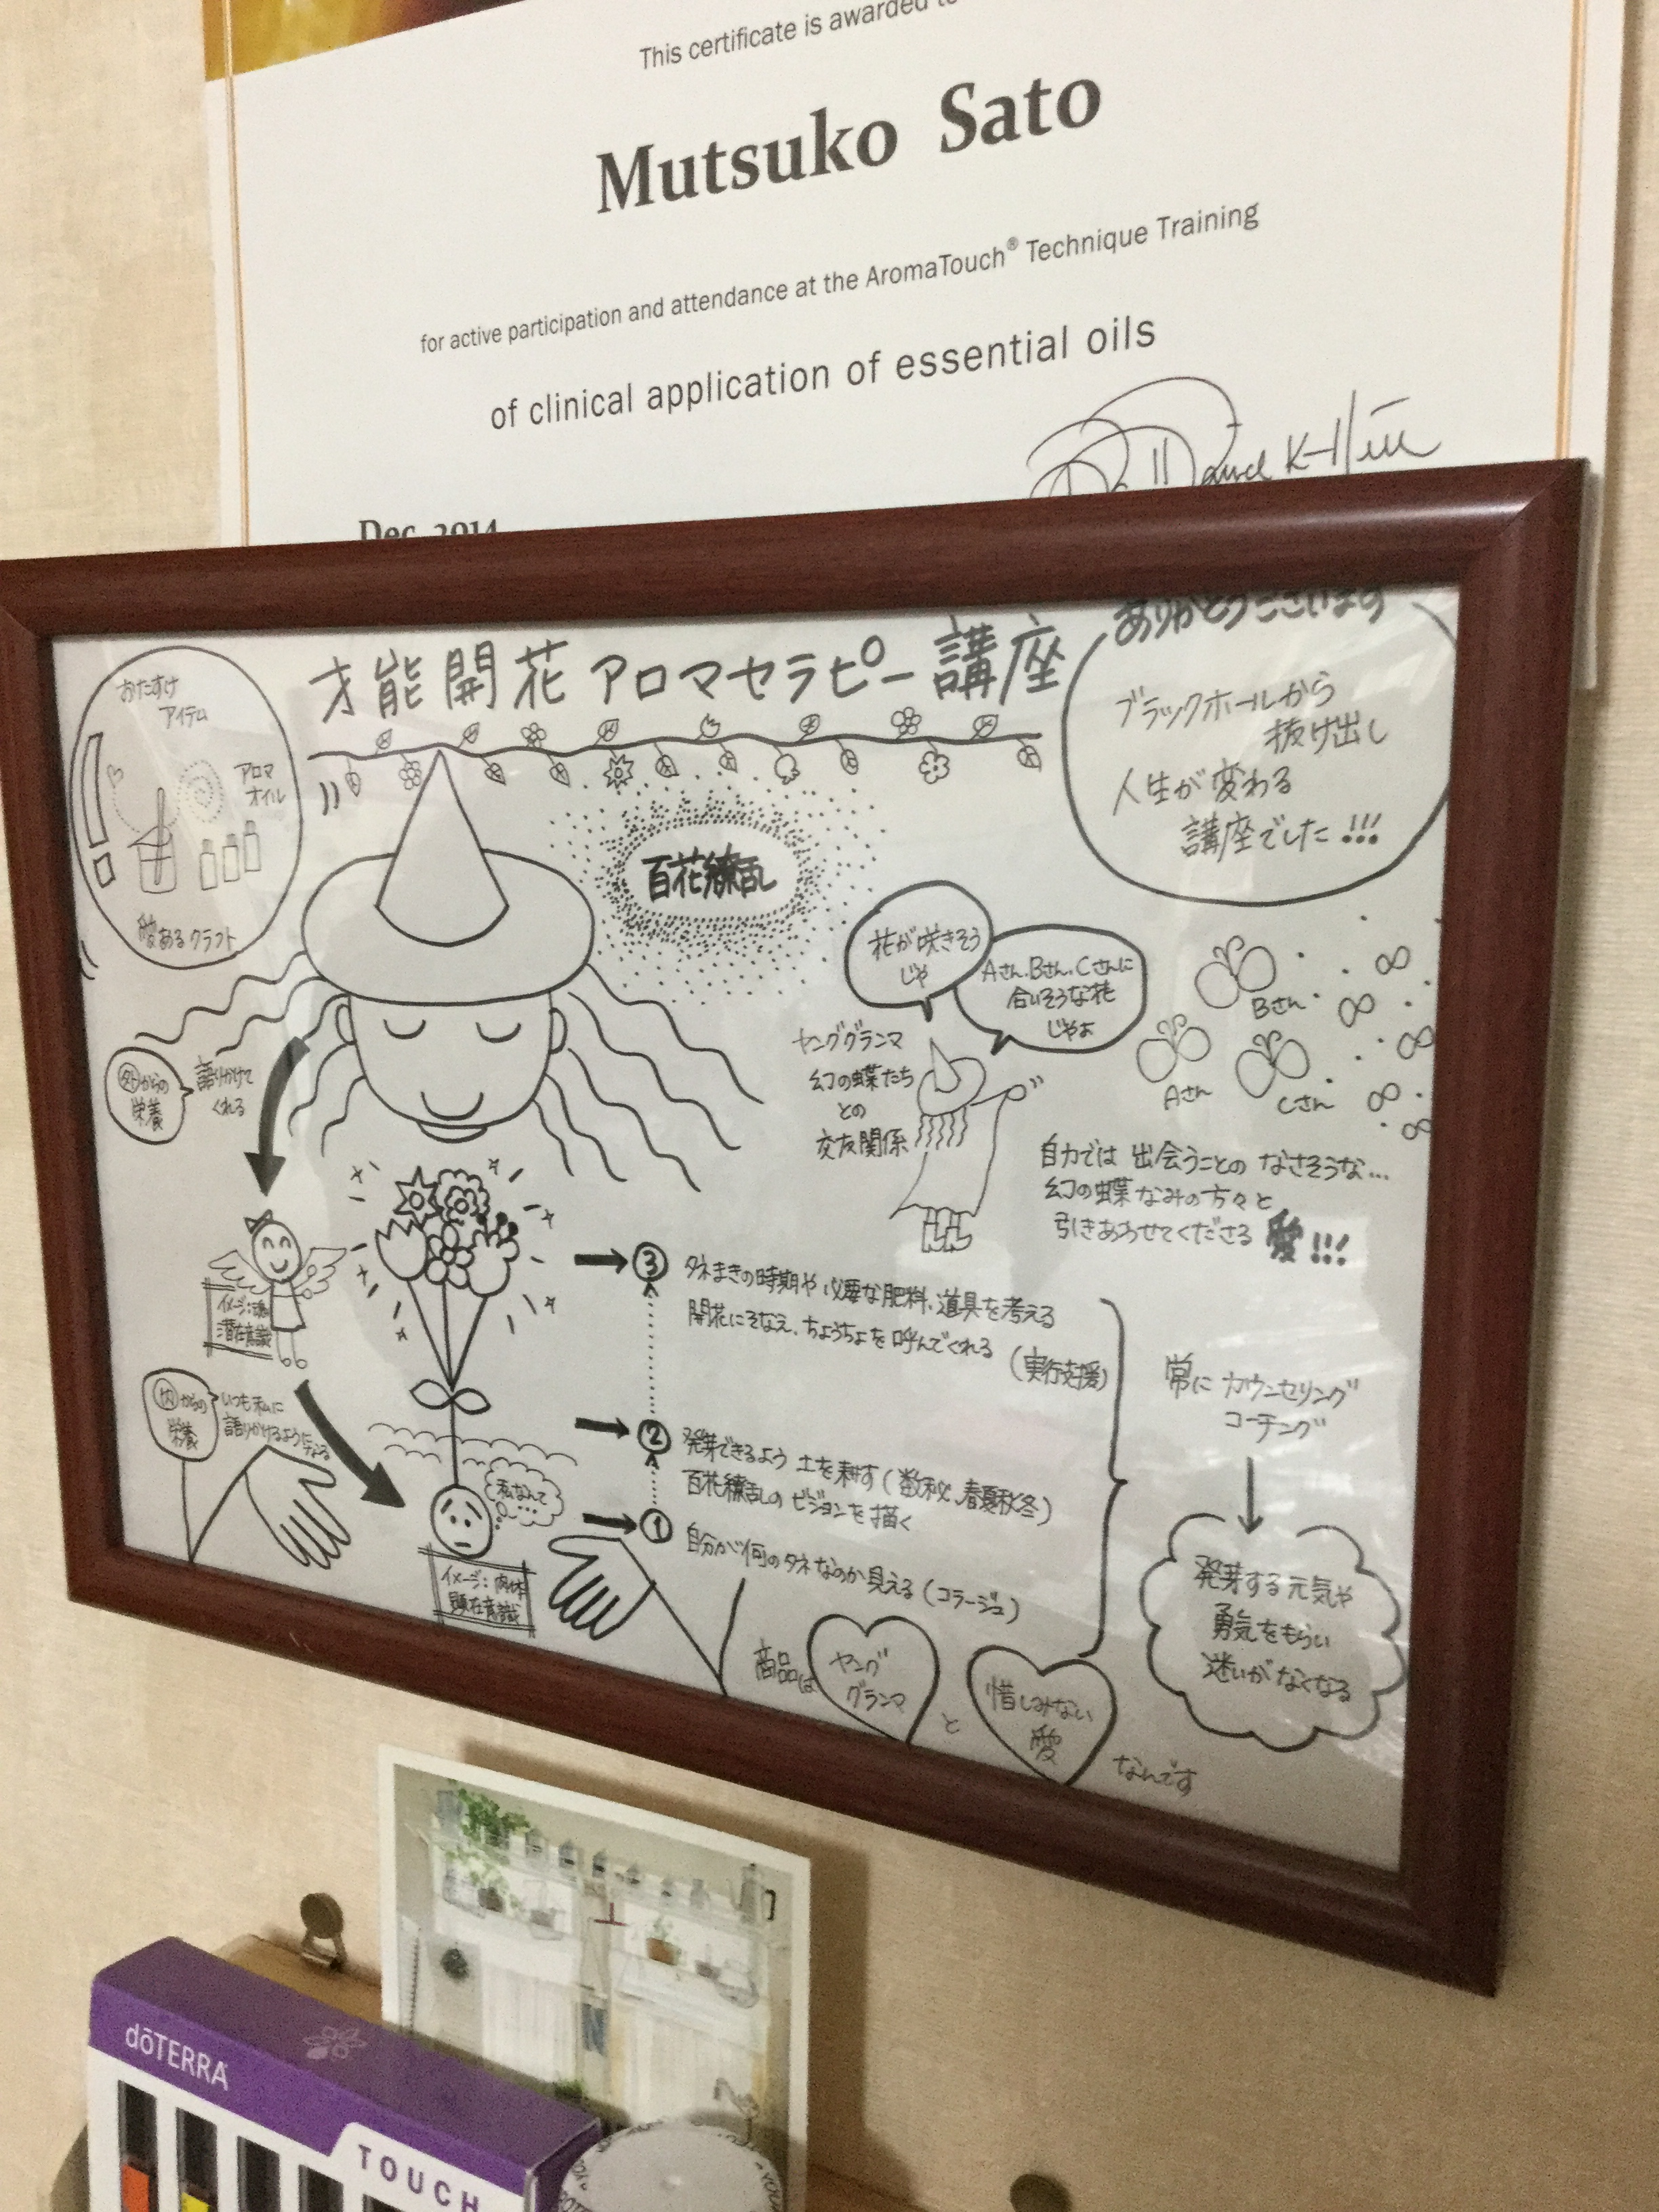 This certificate is awarded to
Mutsuko Sato
for active participation and attendance at the AromaTouch® Technique Training
of clinical application of essential oils
Dec. 2014
才能開花アロマセラピー講座
ありがとうございます
ブラックホールから
抜け出し
人生が変わる
講座でした!!!
おたすけ
アイテム
アロマ
オイル
あるクラフト
百花繚乱
花が咲きそう
じゃ
Aさん、Bさん、Cさんに
合いそうな花
じゃよ
ヤンググランマ
幻の蝶たち
との
交友関係
Bさん
Aさん
Cさん
自力では出会うことのなさそうな…
幻の蝶なみの方々と
引きあわせてくださる愛!!!
外からの
栄養
語りかけて
くれる
イメージ:魂
潜在意識
内からの
栄養
いつも私に
語りかけるように
私なんて
…
イメージ:肉体
顕在意識
③ タネまきの時期や必要な肥料、道具を考える
開花にそなえ、ちょうちょを呼んでくれる
(実行支援)
② 発芽できるよう土を耕す(数秘、春夏秋冬)
百花繚乱のビジョンを描く
① 自分が何のタネなのか見える(コラージュ)
常にカウンセリング
コーチング
発芽する元気や
勇気をもらい
迷いがなくなる
商品は
ヤング
グランマ
と
惜しみない
愛
なんです
dōTERRA
TOUCH